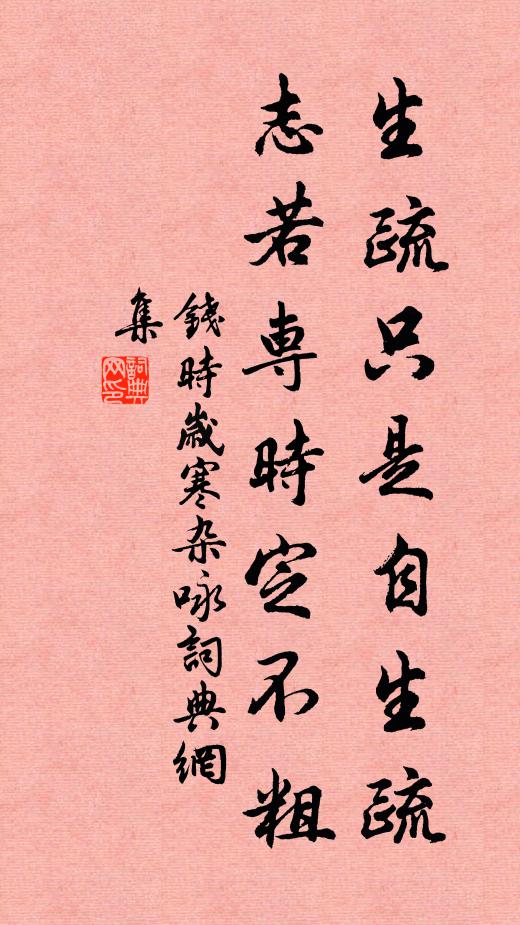 生疏只是自生疏
志若専時定不粗
錢時歲寒杂咏詞典網
集
詞典
网印